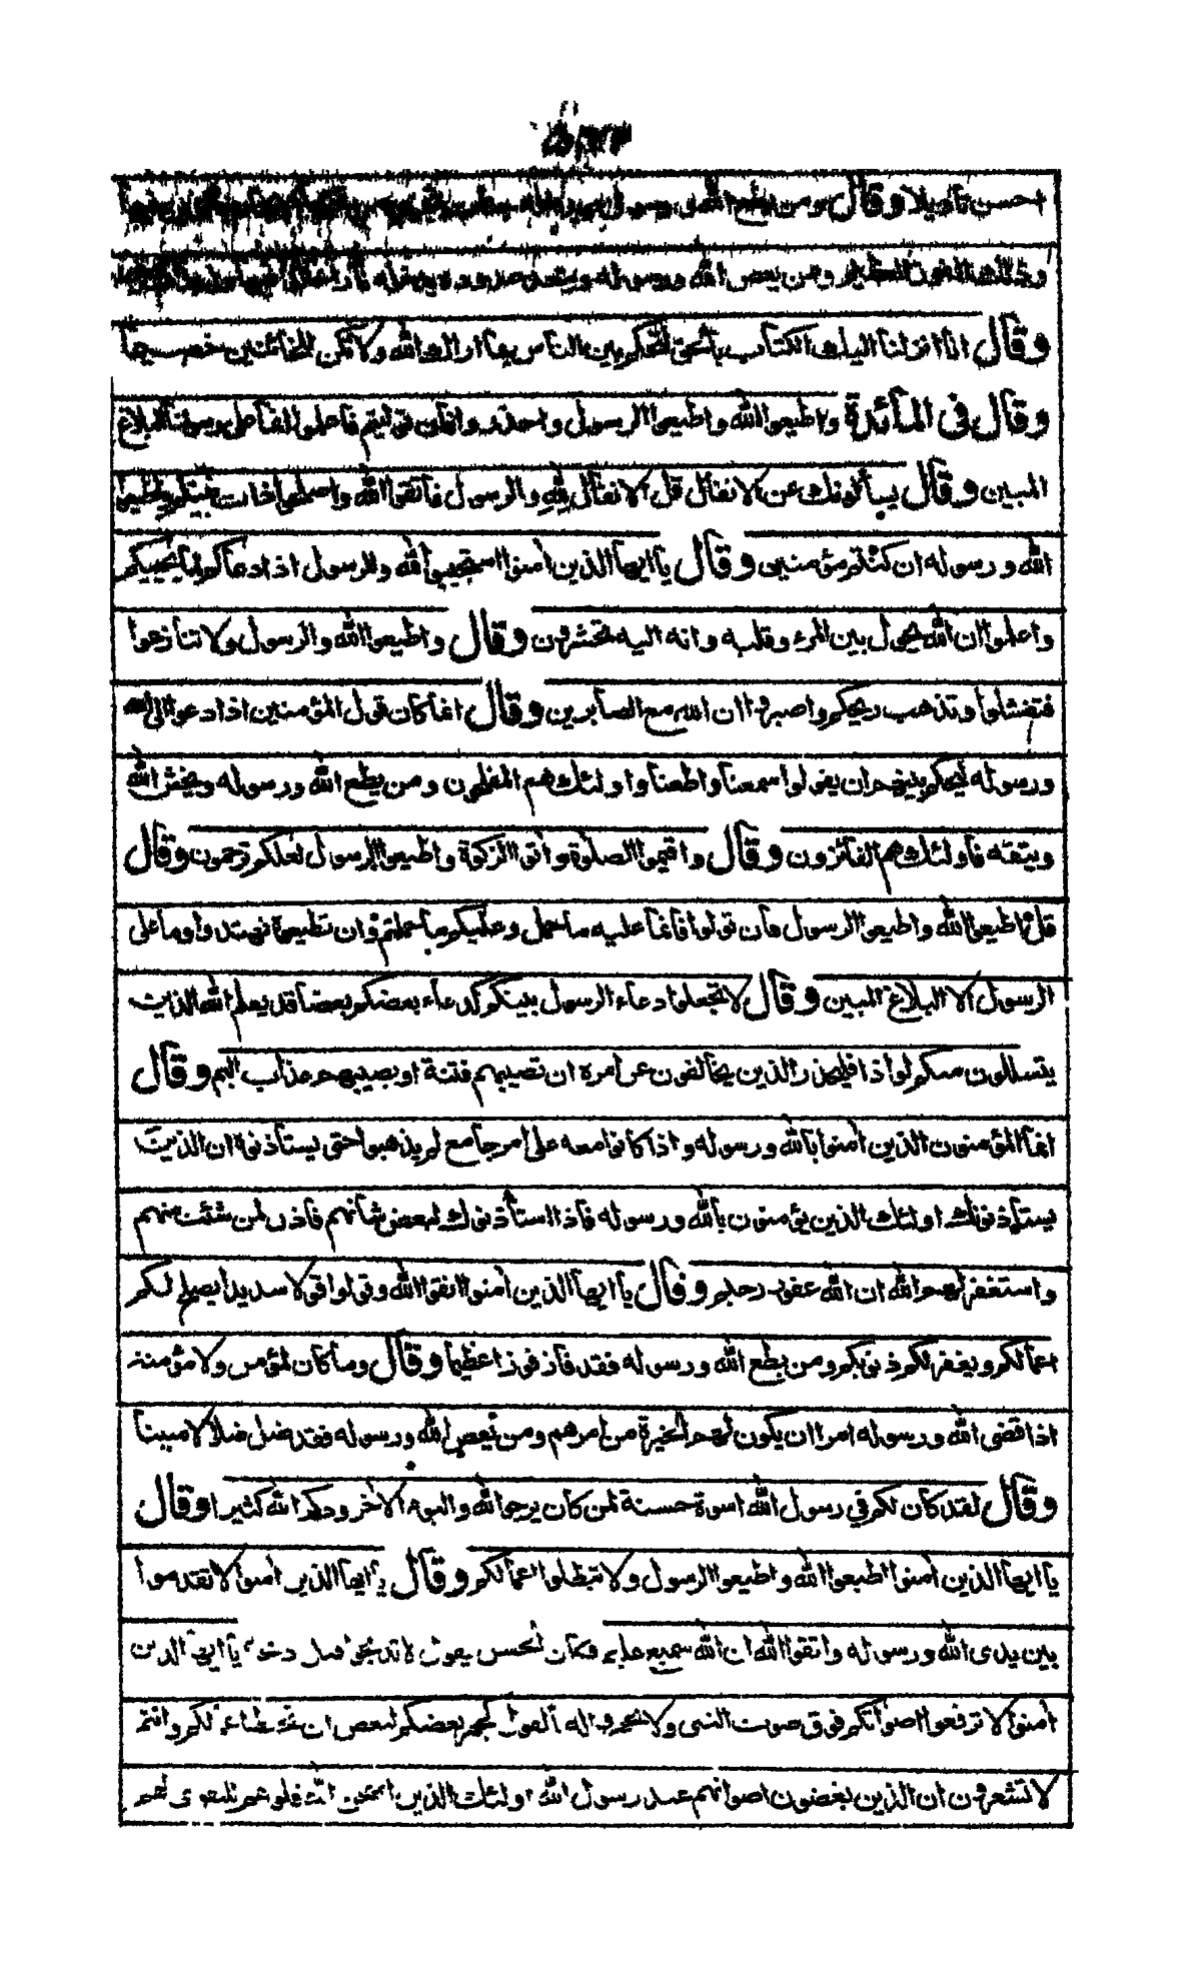 احسن تأويلا وقال ومن يطع الله ورسوله
وذلك الفوز العظيم ومن يعص الله ورسوله ويتعد حدوده يدخله نارا خالدا فيها
وقال انا انزلنا اليك الكتاب بالحق لتحكم بين الناس بما اراك الله ولا تكن للخائنين خصيما
وقال فى المائدة واطيعوا الله واطيعوا الرسول واحذروا فان توليتم فاعلموا انما على رسولنا البلاغ
المبين وقال يسألونك عن الانفال قل الانفال لله والرسول فاتقوا الله واصلحوا ذات بينكم واطيعوا
الله ورسوله ان كنتم مؤمنين وقال يا ايها الذين امنوا استجيبوا لله وللرسول اذا دعاكم لما يحييكم
واعلموا ان الله يحول بين المرء وقلبه وانه اليه تحشرون وقال واطيعوا الله والرسول ولا تنازعوا
فتفشلوا وتذهب ريحكم واصبروا ان الله مع الصابرين وقال انما كان قول المؤمنين اذا دعوا الى الله
ورسوله ليحكم بينهم ان يقولوا سمعنا واطعنا واولئك هم المفلحون ومن يطع الله ورسوله ويخش الله
ويتقه فاولئك هم الفائزون وقال واقيموا الصلوة واتوا الزكوة واطيعوا الرسول لعلكم ترحمون وقال
قل اطيعوا الله واطيعوا الرسول فان تولوا فانما عليه ما حمل وعليكم ما حملتم وان تطيعوه تهتدوا وما على
الرسول الا البلاغ المبين وقال لا تجعلوا دعاء الرسول بينكم كدعاء بعضكم بعضا قد يعلم الله الذين
يتسللون منكم لواذا فليحذر الذين يخالفون عن امره ان تصيبهم فتنة او يصيبهم عذاب اليم وقال
انما المؤمنون الذين امنوا بالله ورسوله واذا كانوا معه على امر جامع لم يذهبوا حتى يستأذنوه ان الذين
يستأذنونك اولئك الذين يؤمنون بالله ورسوله فاذا استأذنوك لبعض شأنهم فأذن لمن شئت منهم
واستغفر لهم الله ان الله غفور رحيم وقال يا ايها الذين امنوا اتقوا الله وقولوا قولا سديدا يصلح لكم
اعمالكم ويغفر لكم ذنوبكم ومن يطع الله ورسوله فقد فاز فوزا عظيما وقال وما كان لمؤمن ولا مؤمنة
اذا قضى الله ورسوله امرا ان يكون لهم الخيرة من امرهم ومن يعص الله ورسوله فقد ضل ضلالا مبينا
وقال لقد كان لكم في رسول الله اسوة حسنة لمن كان يرجو الله واليوم الاخر وذكر الله كثيرا وقال
يا ايها الذين امنوا اطيعوا الله واطيعوا الرسول ولا تبطلوا اعمالكم وقال يا ايها الذين امنوا لا تقدموا
بين يدى الله ورسوله واتقوا الله ان الله سميع عليم فكان الحسن يقول لا تذبحوا قبل ذبحه يا ايها الذين
امنوا لا ترفعوا اصواتكم فوق صوت النبى ولا تجهروا له بالقول كجهر بعضكم لبعض ان تحبط اعمالكم وانتم
لا تشعرون ان الذين يغضون اصواتهم عند رسول الله اولئك الذين امتحن الله قلوبهم للتقوى لهم